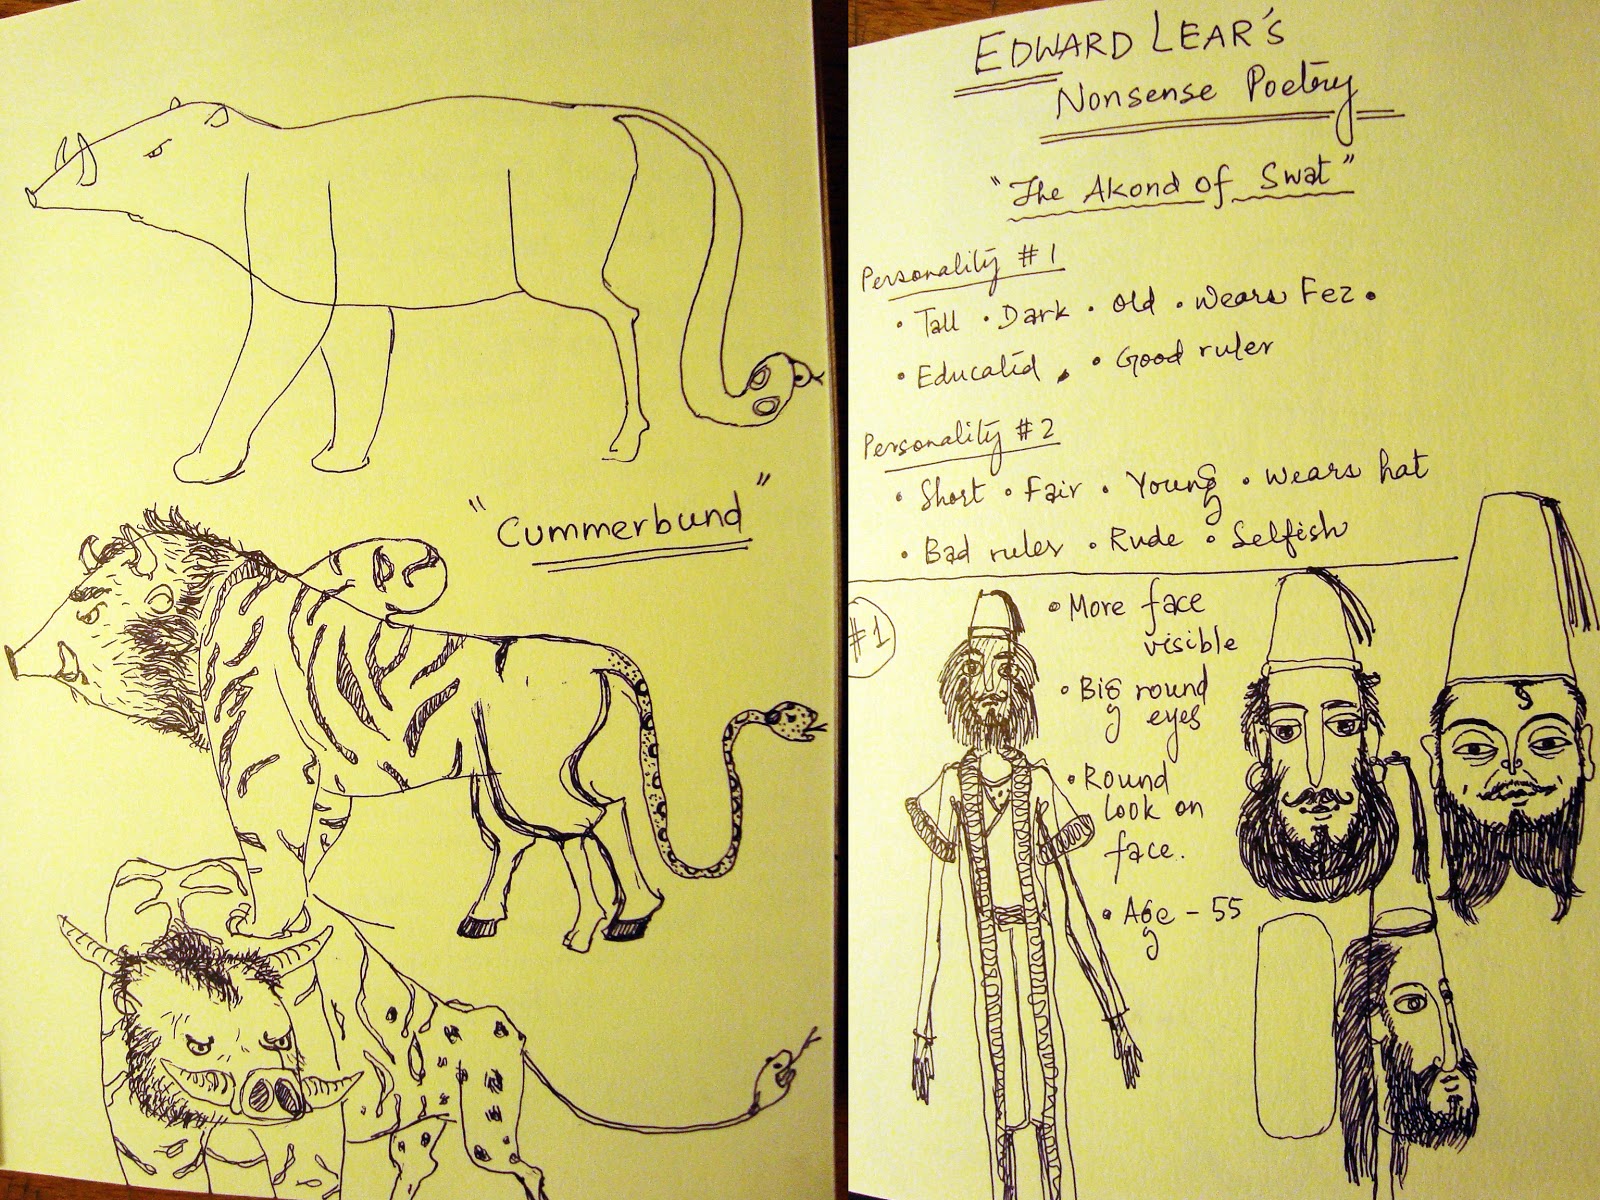 "Cummerbund"
EDWARD LEAR'S
Nonsense Poetry
"The Akond of Swat"
Personality #1
• Tall • Dark • Old • Wears Fez •
• Educated • • Good ruler
Personality #2
• Short • Fair • Young • Wears hat
• Bad ruler • Rude • Selfish
#1
• More face
visible
• Big round
eyes
• Round
look on
face.
• Age - 55